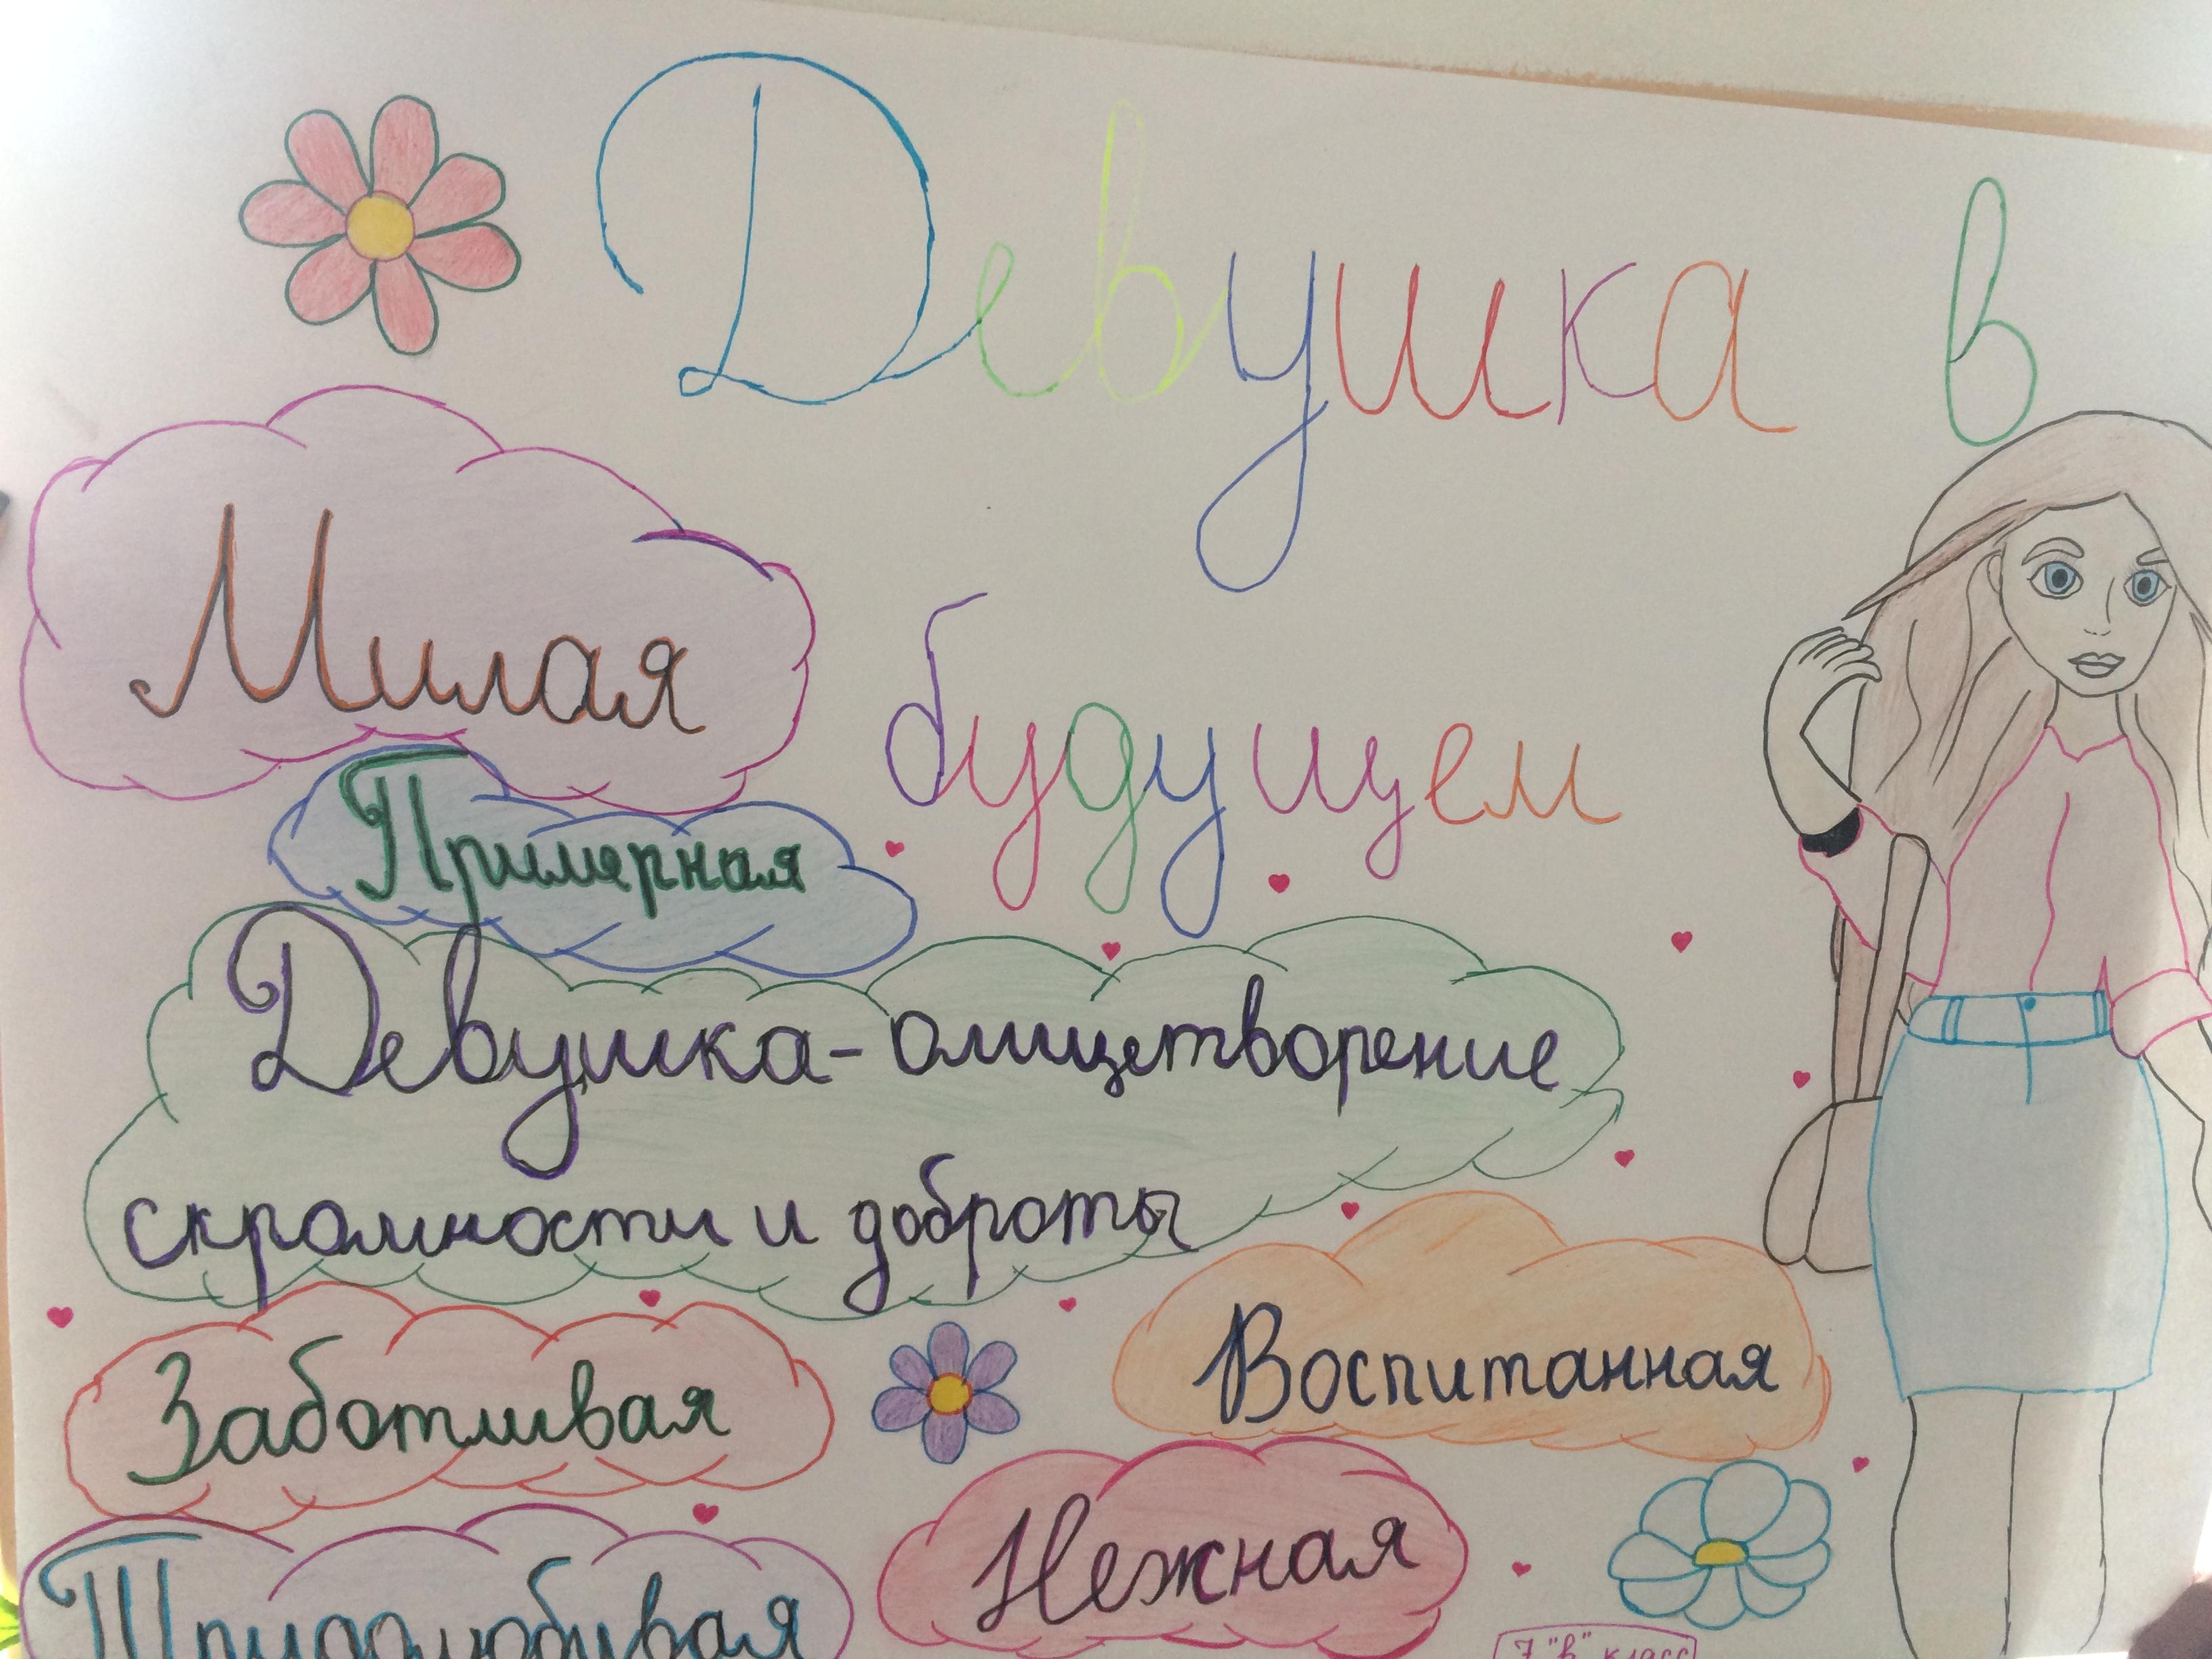 Девушка в
будущем
Милая
Примерная
Девушка-олицетворение
скромности и доброты
Заботливая
Воспитанная
Нежная
Трудолюбивая
7 "в" класс